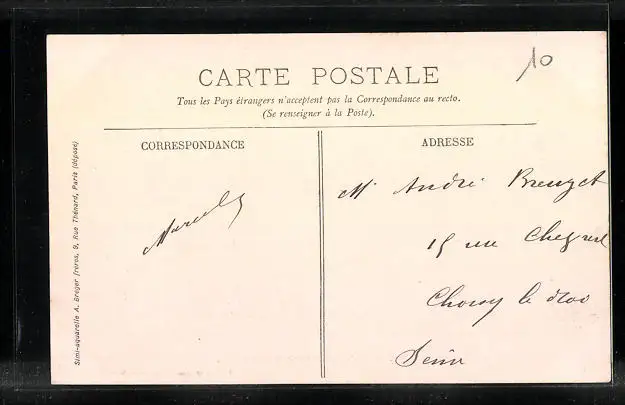 10
CARTE POSTALE
Tous les Pays étrangers n'acceptent pas la Correspondance au recto.
(Se renseigner à la Poste).
CORRESPONDANCE
ADRESSE
Simi-aquarelle A. Breger frères, 9, Rue Thénard, Paris (déposé)
Mr André
15 rue
Choisy le Roi
Seine